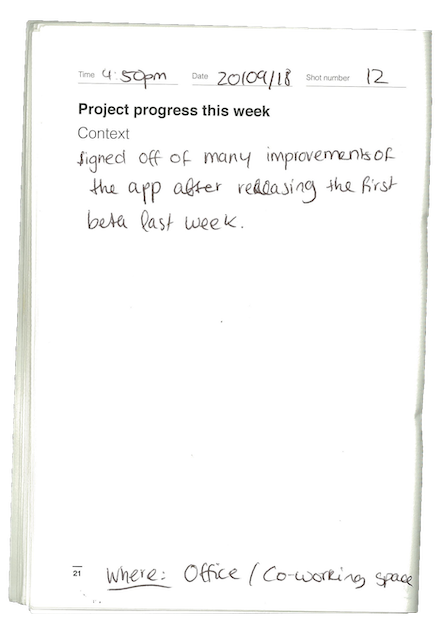 Time 4:50pm Date 20/09/18 Shot number 12
Project progress this week
Context
signed off of many improvements of
the app after releasing the first
beta last week.
21 Where: Office / Co-working space